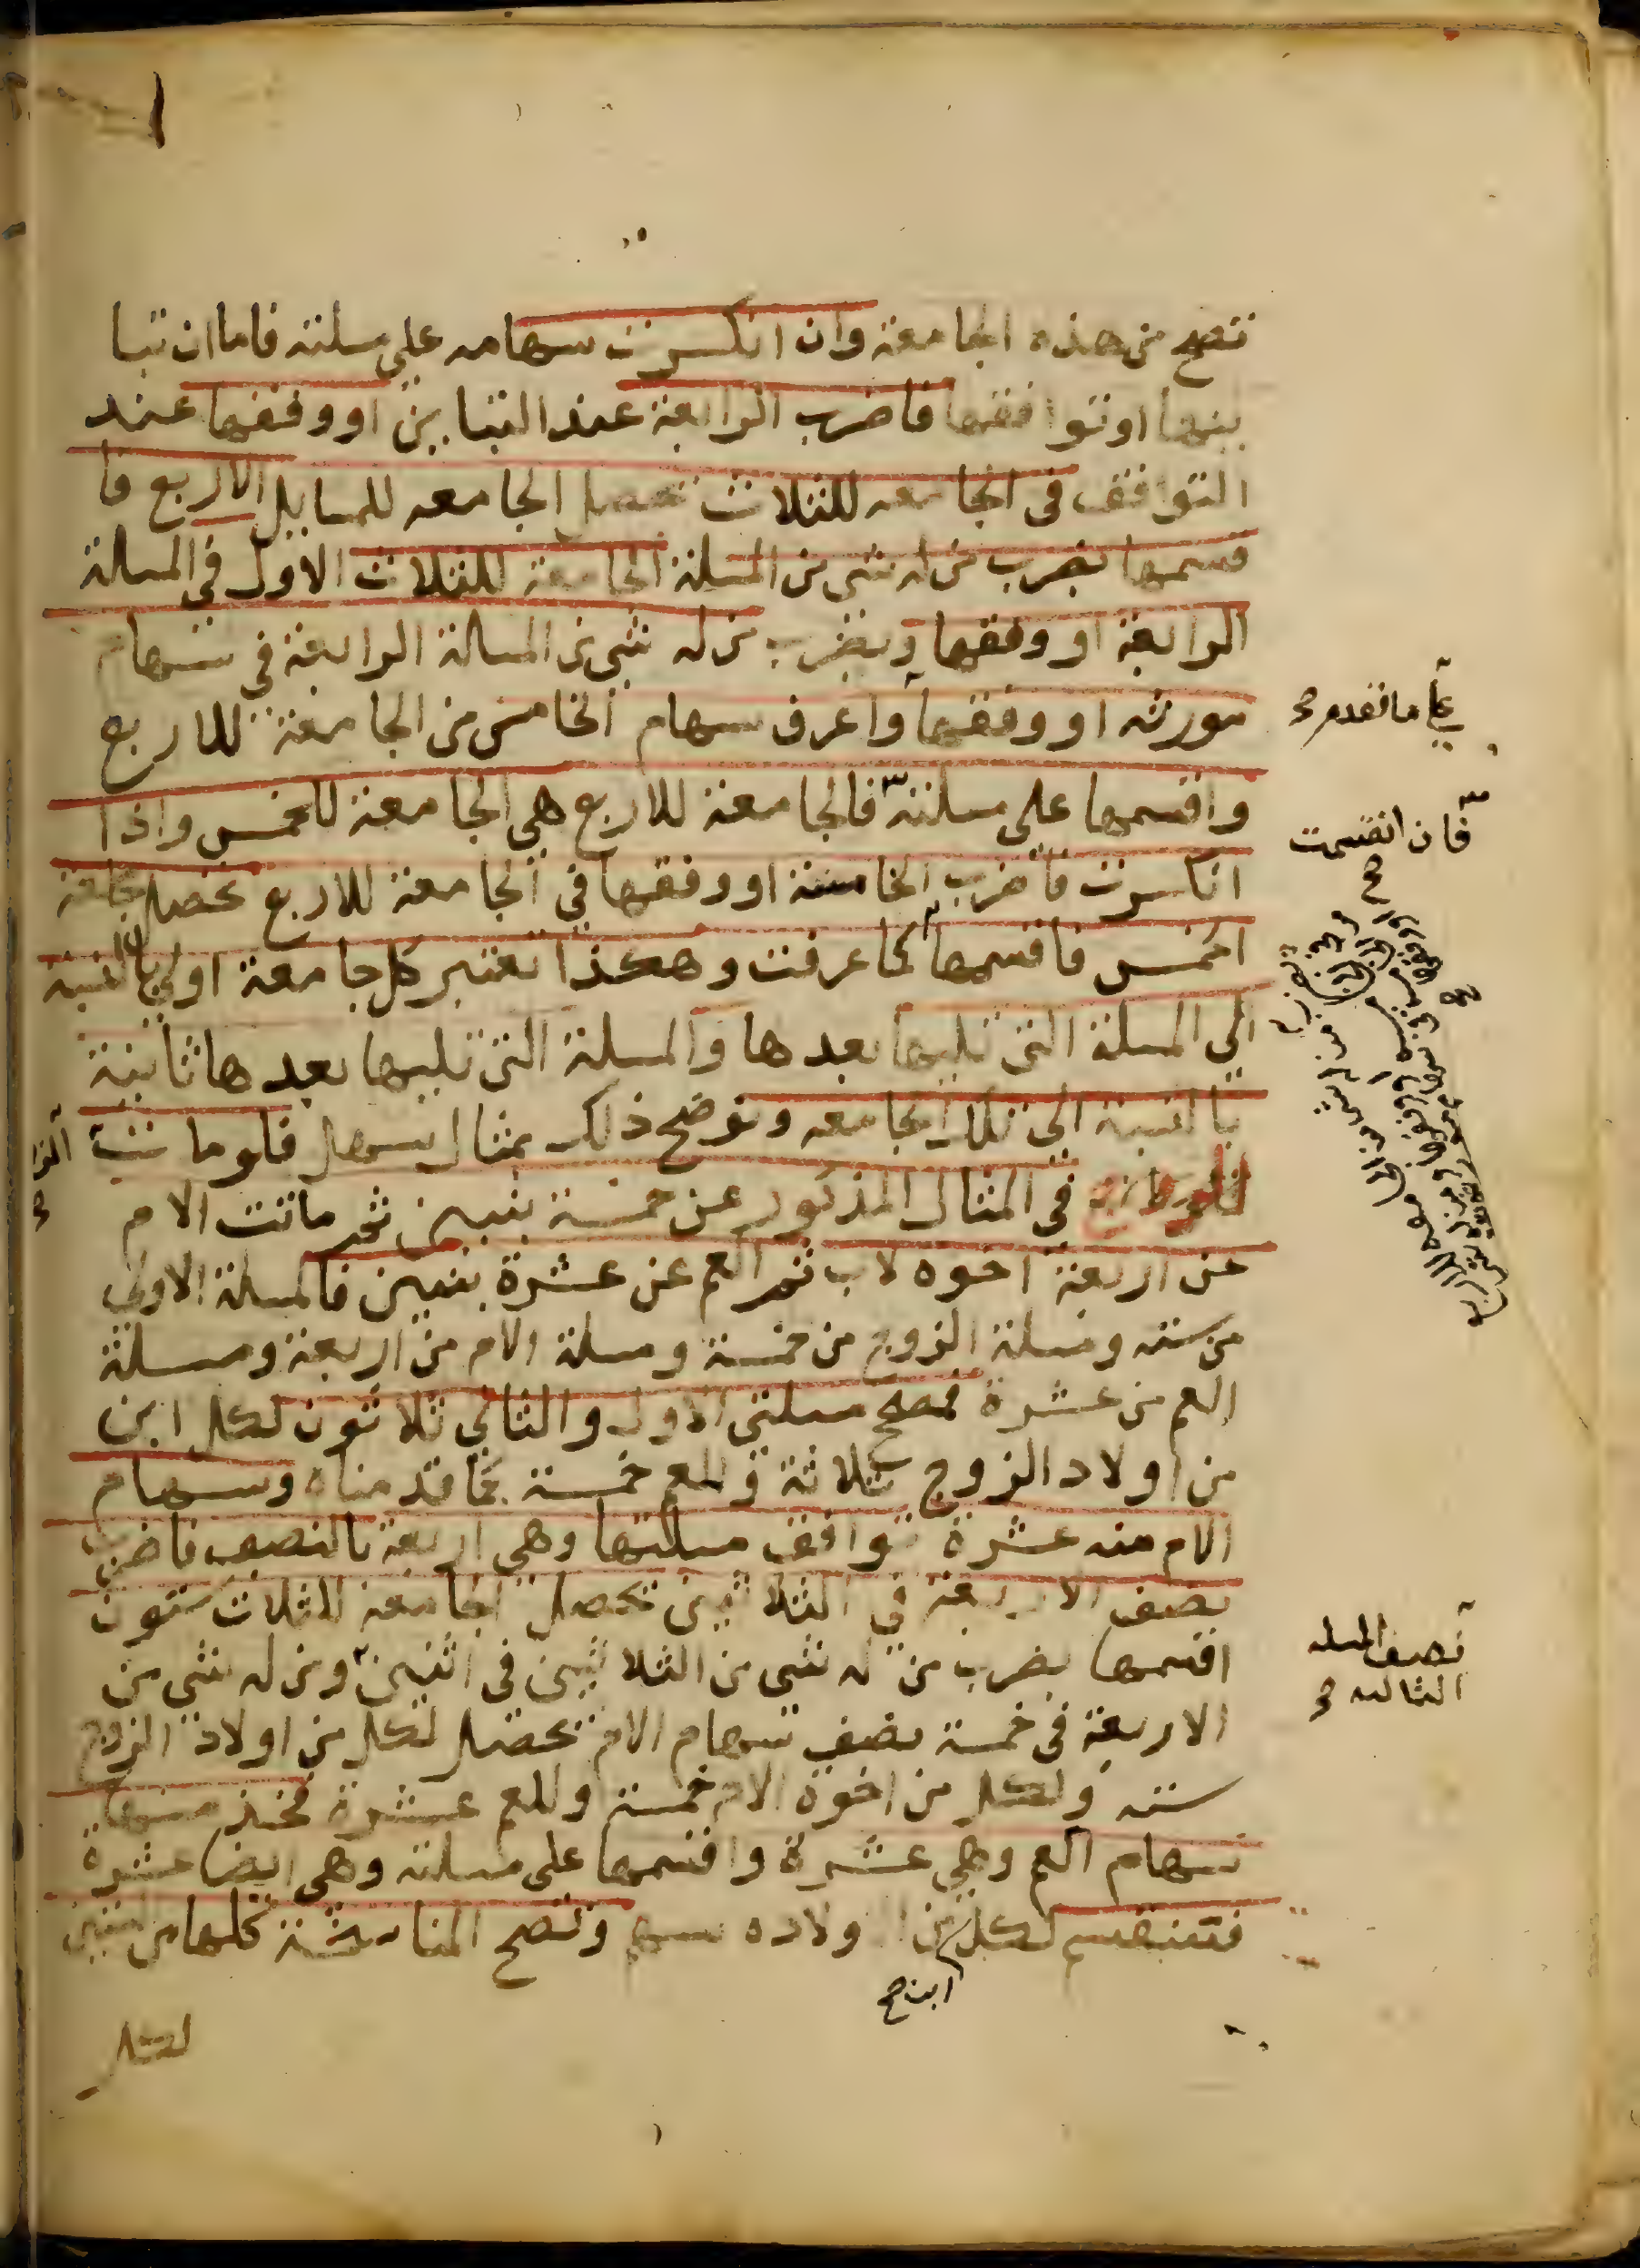 تصح من هذه الجامعة وان انكسرت سهامه على مسلته فاما ان تبا
ينها او توافقها فاضرب الرابعة عند التباين او وفقها عند
التوافق في الجامعه للثلاث تحصل الجامعه للمسايل الاربع فا
قسمها بضرب من له شي من المسلة الجامعة للثلاث الاول في المسالة
الرابعة او وفقها وبضرب من له شي من المسالة الرابعة في سهام
مورثه او وفقها واعرف سهام الخامس من الجامعة للاربع
على ما تقدم صح
واقسمها على مسلته فالجامعة للاربع هي الجامعة للخمس واذا
فان انقسمت صح
انكسرت فاضرب الخامسة او وفقها في الجامعة للاربع تحصل جامعة
الخمس فاقسمها كما عرفت وهكذا تعتبر كل جامعة اولي بالنسبة
الي المسلة التي تليها بعدها والمسلة التي تليها بعدها ثانية
بالنسبة الي تلك الجامعه ونوضح ذلك بمثال يسهل فلو مات
في المثال المذكور عن خمسة بنين ثم ماتت الام
عن اربعة اخوه لاب ثم العم عن عشرة بنين فالمسلة الاولي
من سته ومسلة الزوج من خمسة ومسلة الام من اربعة ومسلة
العم من عشرة فمصح مسلتي الاول والثاني ثلاثون لكل ابن
من اولاد الزوج ثلاثة وللعم خمسة كما قدمناه وسهام
الام منه عشرة توافق مسلتها وهي اربعة بالنصف فاضرب
نصف الاربعة في الثلاثين تحصل الجامعة للثلاث ستون
اقسمها بضرب من له شي من الثلاثين في اثنين ومن له شي من
نصف المسله
الثالثه صح
الاربعة في خمسة نصف سهام الام تحصل لكل من اولاد الزوج
سته ولكل من اخوة الام خمسة وللعم عشرة فخذ منها
سهام العم وهي عشرة واقسمها على مسلته وهي ايضا عشرة
فتنقسم لكل من اولاده سهم وتصح المناسخة كلها من الستين
ابن صح
لكل